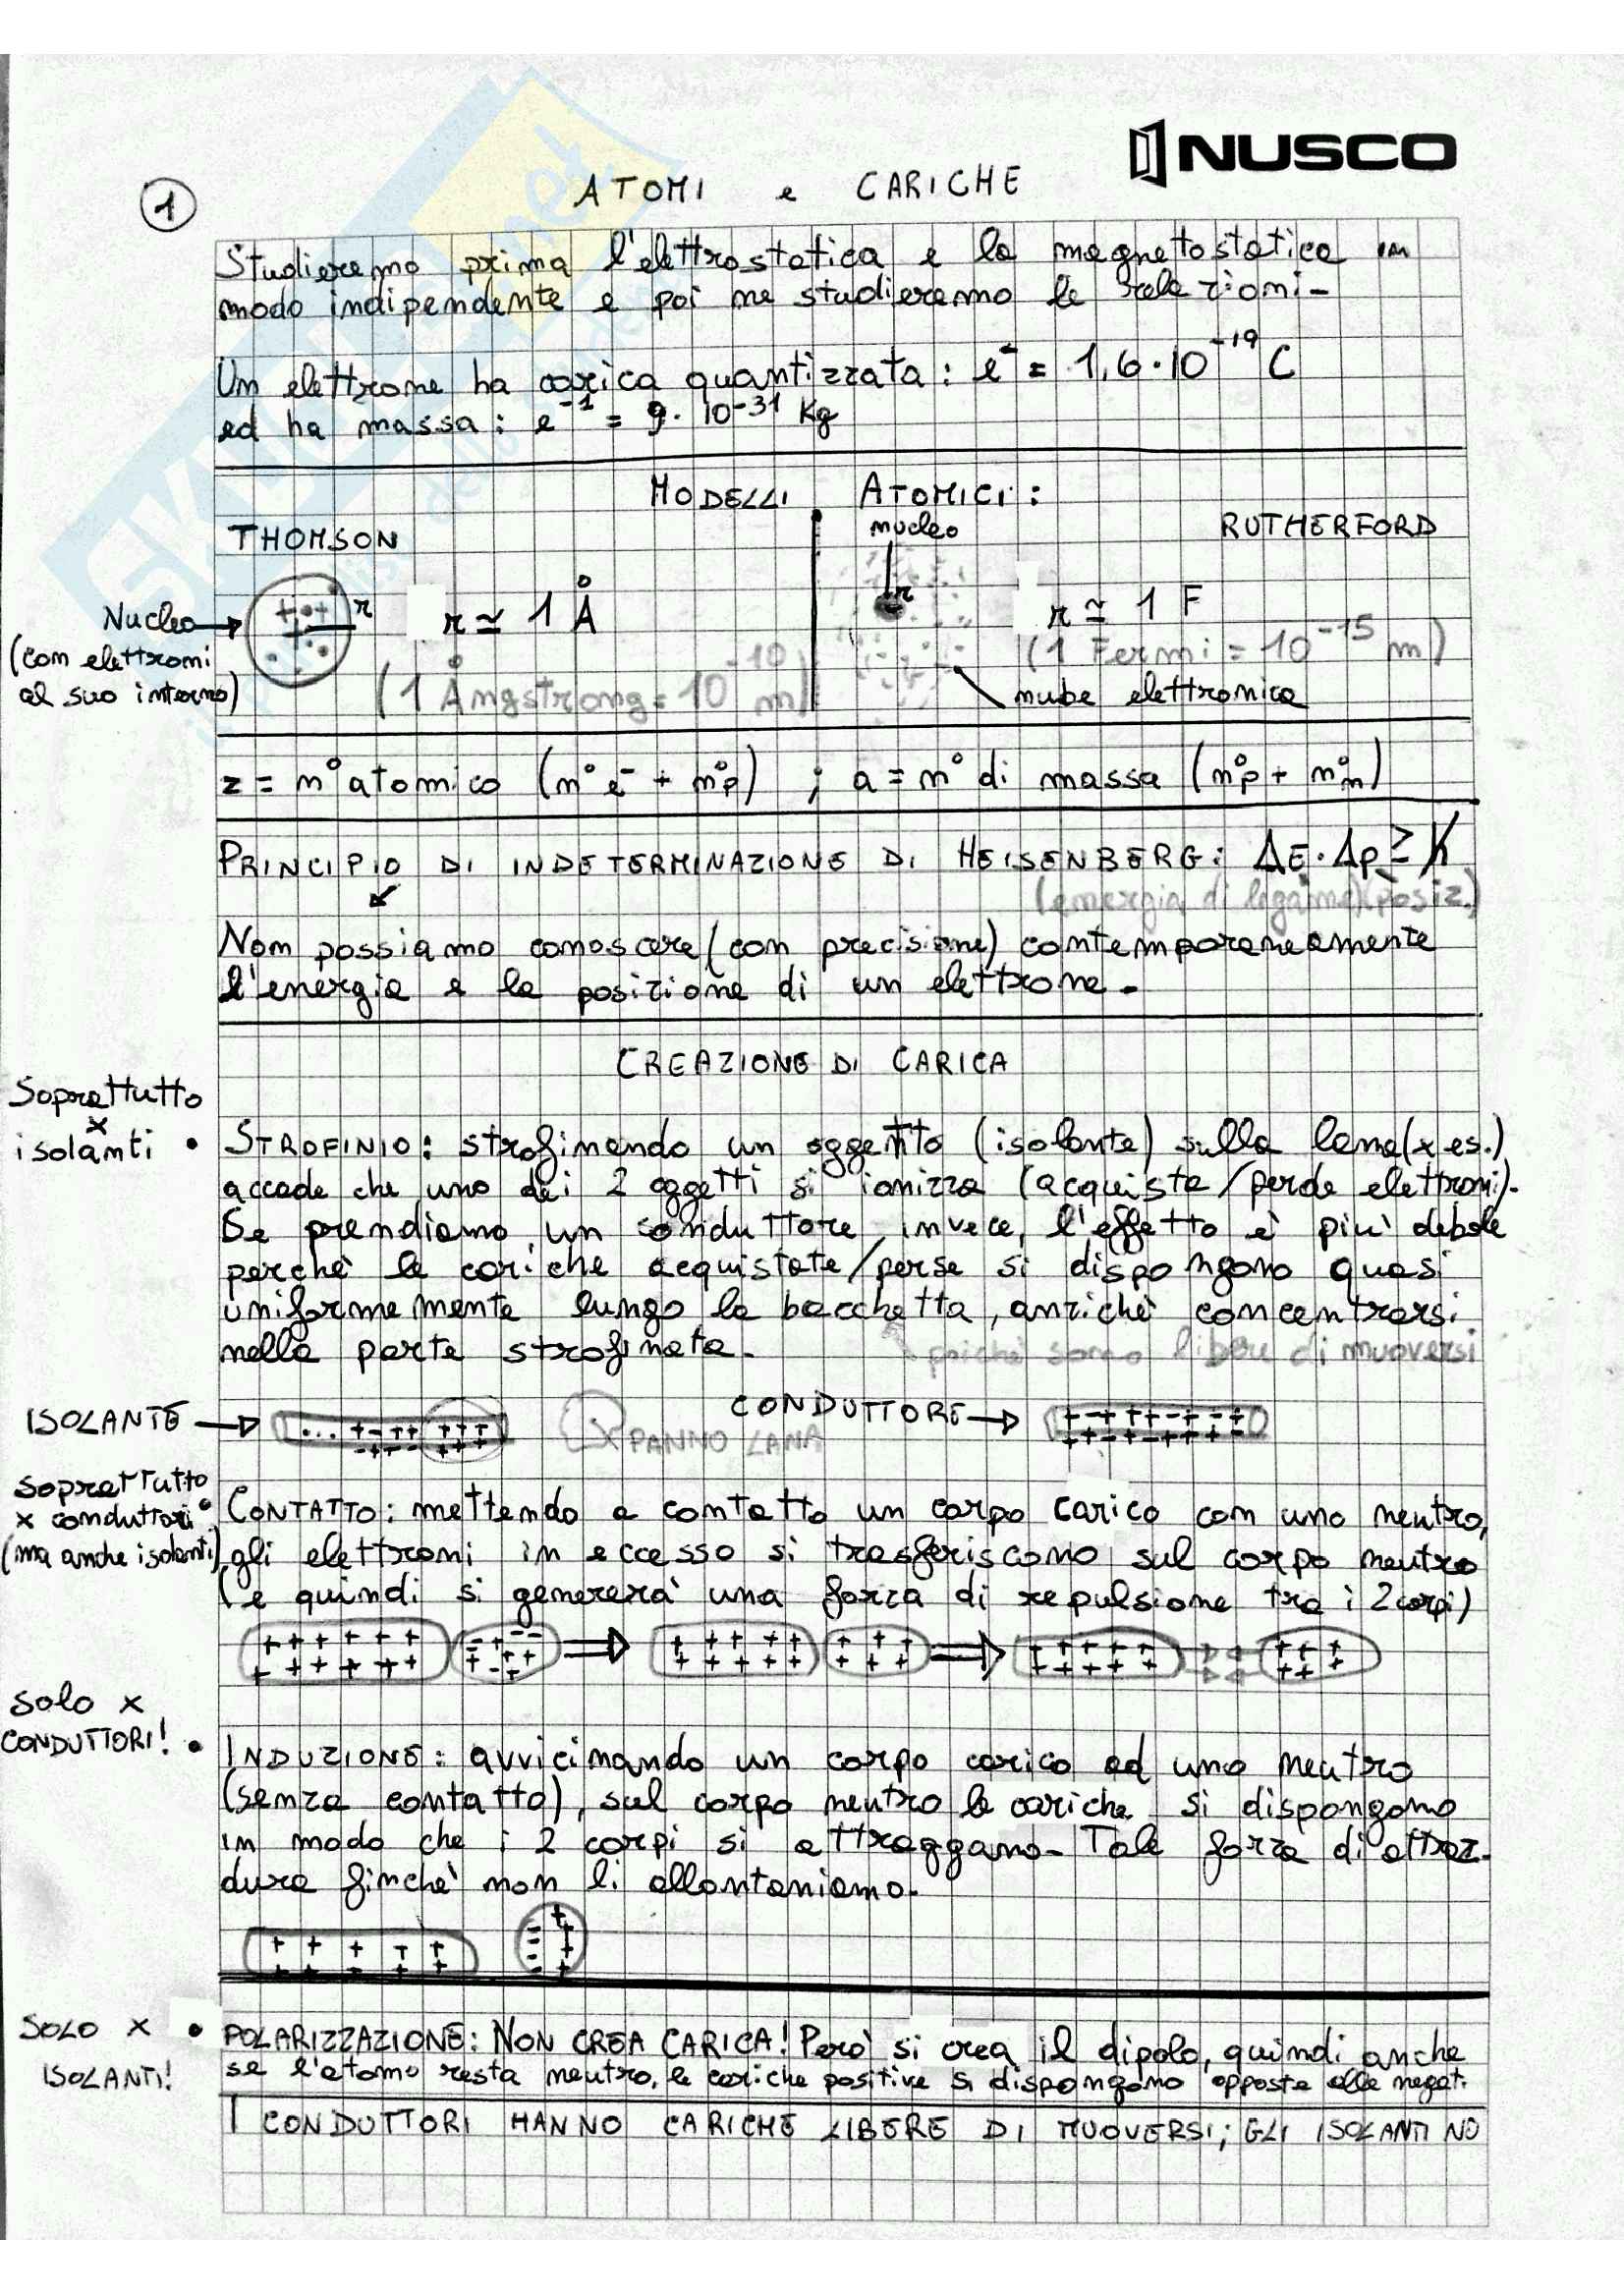 NUSCO
1
ATOMI e CARICHE
Studieremo prima l'elettrostatica e la magnetostatica in
modo indipendente e poi ne studieremo le relazioni-
Un elettrone ha carica quantizzata: e⁻ = 1,6·10⁻¹⁹ C
ed ha massa: e⁻¹ = 9· 10⁻³¹ Kg
MODELLI ATOMICI:
THOMSON
nucleo
RUTHERFORD
Nucleo
(con elettroni
al suo interno)
r
r ≃ 1 Å
(1 Ångstrong = 10⁻¹⁰ m)
r
r ≃ 1 F
(1 Fermi = 10⁻¹⁵ m)
nube elettronica
z = n° atomico (n°e⁻ + n°p) ; a = n° di massa (n°p + n°n)
PRINCIPIO DI INDETERMINAZIONE DI HEISENBERG: ΔE·Δp ≥ ħ
(energia di legame) (posiz.)
Non possiamo conoscere (con precisione) contemporaneamente
l'energia e la posizione di un elettrone.
CREAZIONE DI CARICA
Soprattutto
x
isolanti
• STROFINIO: strofinando un oggetto (isolante) sulla lana (x es.)
accade che uno dei 2 oggetti si ionizza (acquista/perde elettroni).
Se prendiamo un conduttore invece, l'effetto è più debole
perchè le cariche acquistate/perse si dispongono quasi
uniformemente lungo la bacchetta, anzichè concentrarsi
nella parte strofinata.
poichè sono libere di muoversi
ISOLANTE
PANNO LANA
CONDUTTORE
soprattutto
x conduttori
(ma anche isolanti)
• CONTATTO: mettendo a contatto un corpo carico con uno neutro,
gli elettroni in eccesso si trasferiscono sul corpo neutro
(e quindi si genererà una forza di repulsione tra i 2 corpi)
Solo x
CONDUTTORI!
• INDUZIONE: avvicinando un corpo carico ad uno neutro
(senza contatto), sul corpo neutro le cariche si dispongono
in modo che i 2 corpi si attraggano- Tale forza di attraz.
dura finchè non li allontaniamo.
SOLO x
ISOLANTI!
• POLARIZZAZIONE: NON CREA CARICA! Però si crea il dipolo, quindi anche
se l'atomo resta neutro, le cariche positive si dispongono opposte alle negat.
I CONDUTTORI HANNO CARICHE LIBERE DI MUOVERSI; GLI ISOLANTI NO